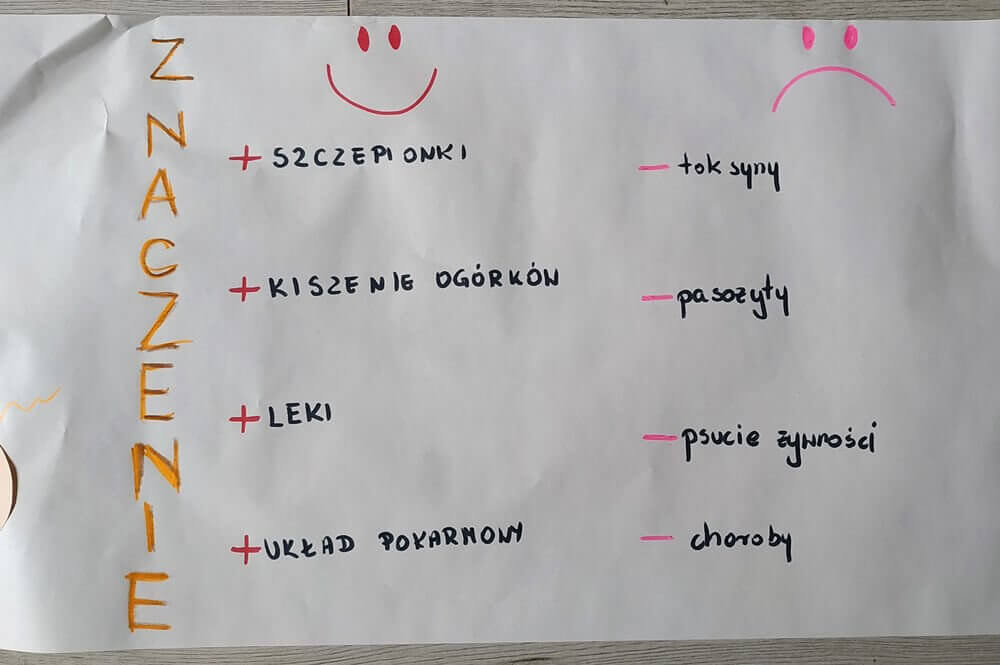 ZNACZENIE
+ SZCZEPIONKI
+ KISZENIE OGÓRKÓW
+ LEKI
+ UKŁAD POKARMOWY
- toksyny
- pasożyty
- psucie żywności
- choroby